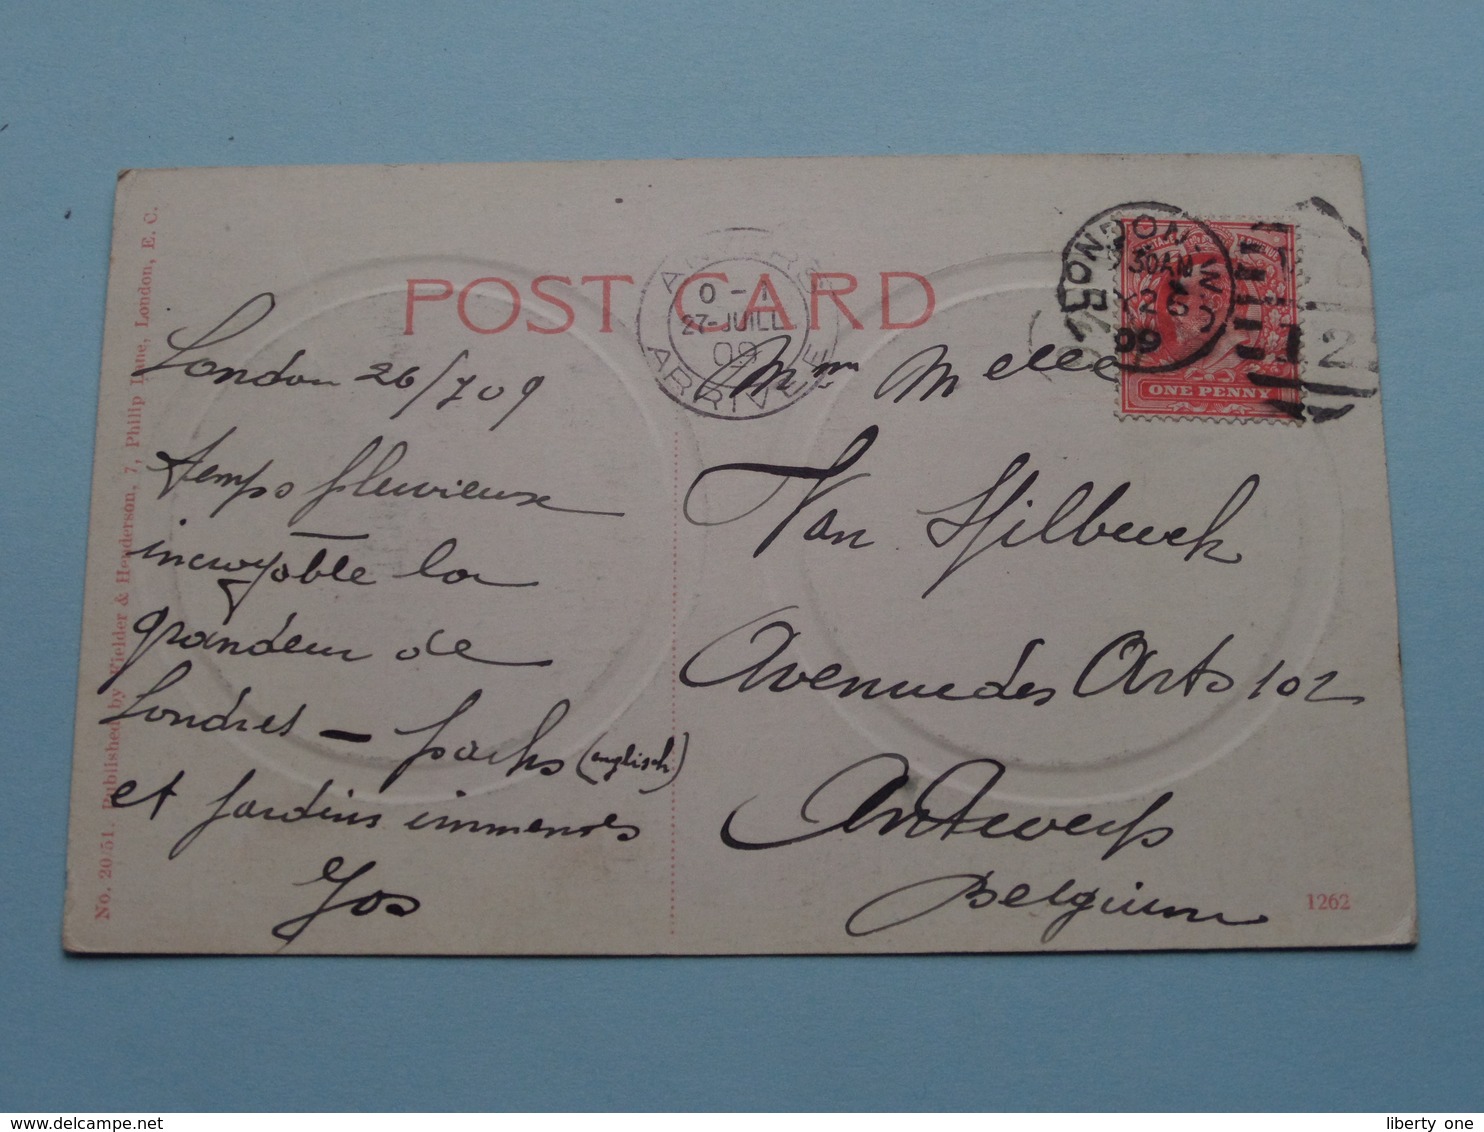 POST CARD
London 26/7 09
temps pluvieux
incroyable la
grandeur de
Londres – parks (englisch)
et jardins immenses
Jos
ANVERS
0 - 1
27-JUILL
09
ARRIVEE
LONDON. W.
30AM
26
09
2
ONE PENNY
Mme Melle
Van Hilbeeck
Avenue des Arts 102
Antwerp
Belgium
1262
No. 20/51. Published by Fielder & Henderson, 7, Philip Lane, London, E. C.
liberty one